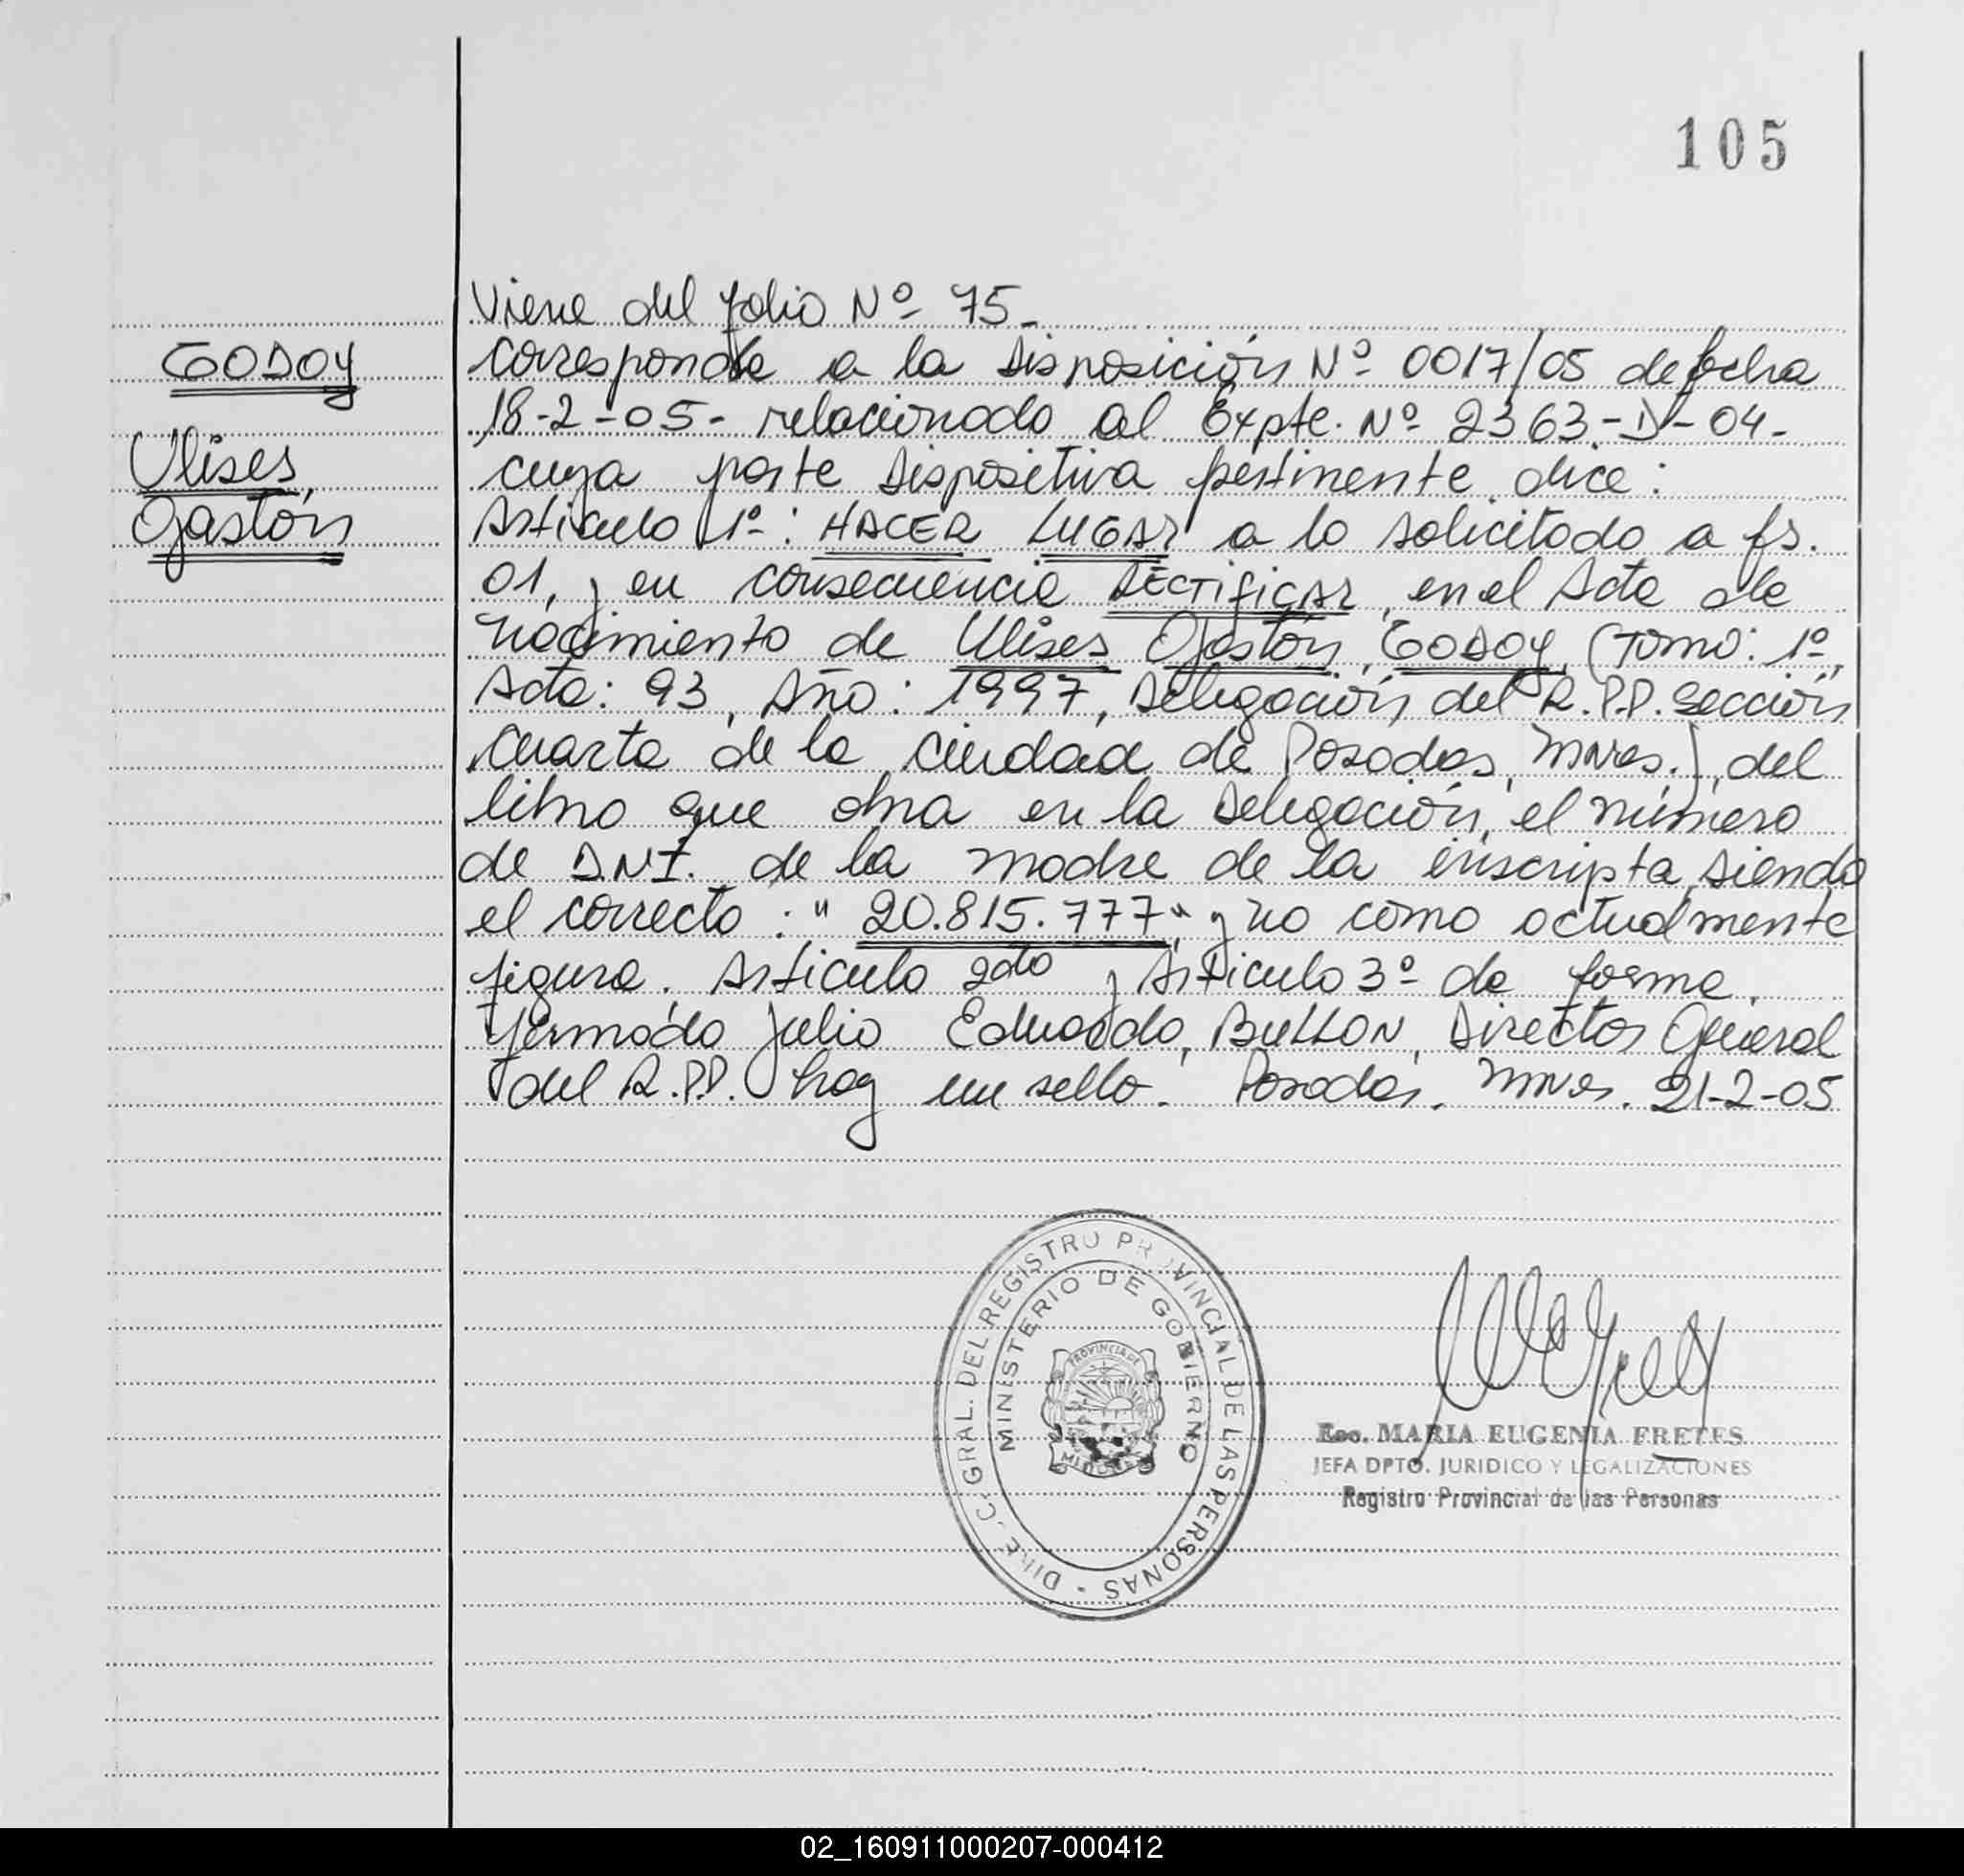 105
Viene del folio Nº 75-
GODOY
Ulises,
Gastón
corresponde a la Disposición Nº 0017/05 de fecha
18-2-05- relacionado al Expte. Nº 2363-D-04-
cuya parte Dispositiva pertinente dice:
Artículo 1º: HACER LUGAR a lo solicitado a fs.
01, y en consecuencia RECTIFICAR, en el Acta de
nacimiento de Ulises Gastón, GODOY, (Tomo: 1º,
Acta: 93, Año: 1997, Delegación del R.P.P. Sección
Cuarta de la ciudad de Posadas, Mnes.), del
libro que obra en la Delegación, el número
de D.N.I. de la madre de la inscripta, siendo
el correcto: "20.815.777", y no como actualmente
figura. Artículo 2do y Artículo 3º de forma.
Firmado Julio Eduardo, BULLON, Director General
del R.P.P. hay un sello. Posadas. Mnes. 21-2-05
DIREC. GRAL. DEL REGISTRO PROVINCIAL DE LAS PERSONAS -
MINISTERIO DE GOBIERNO
PROVINCIA DE
MISIONES
Esc. MARIA EUGENIA FRETES
JEFA DPTO. JURIDICO Y LEGALIZACIONES
Registro Provincial de las Personas
02_160911000207-000412